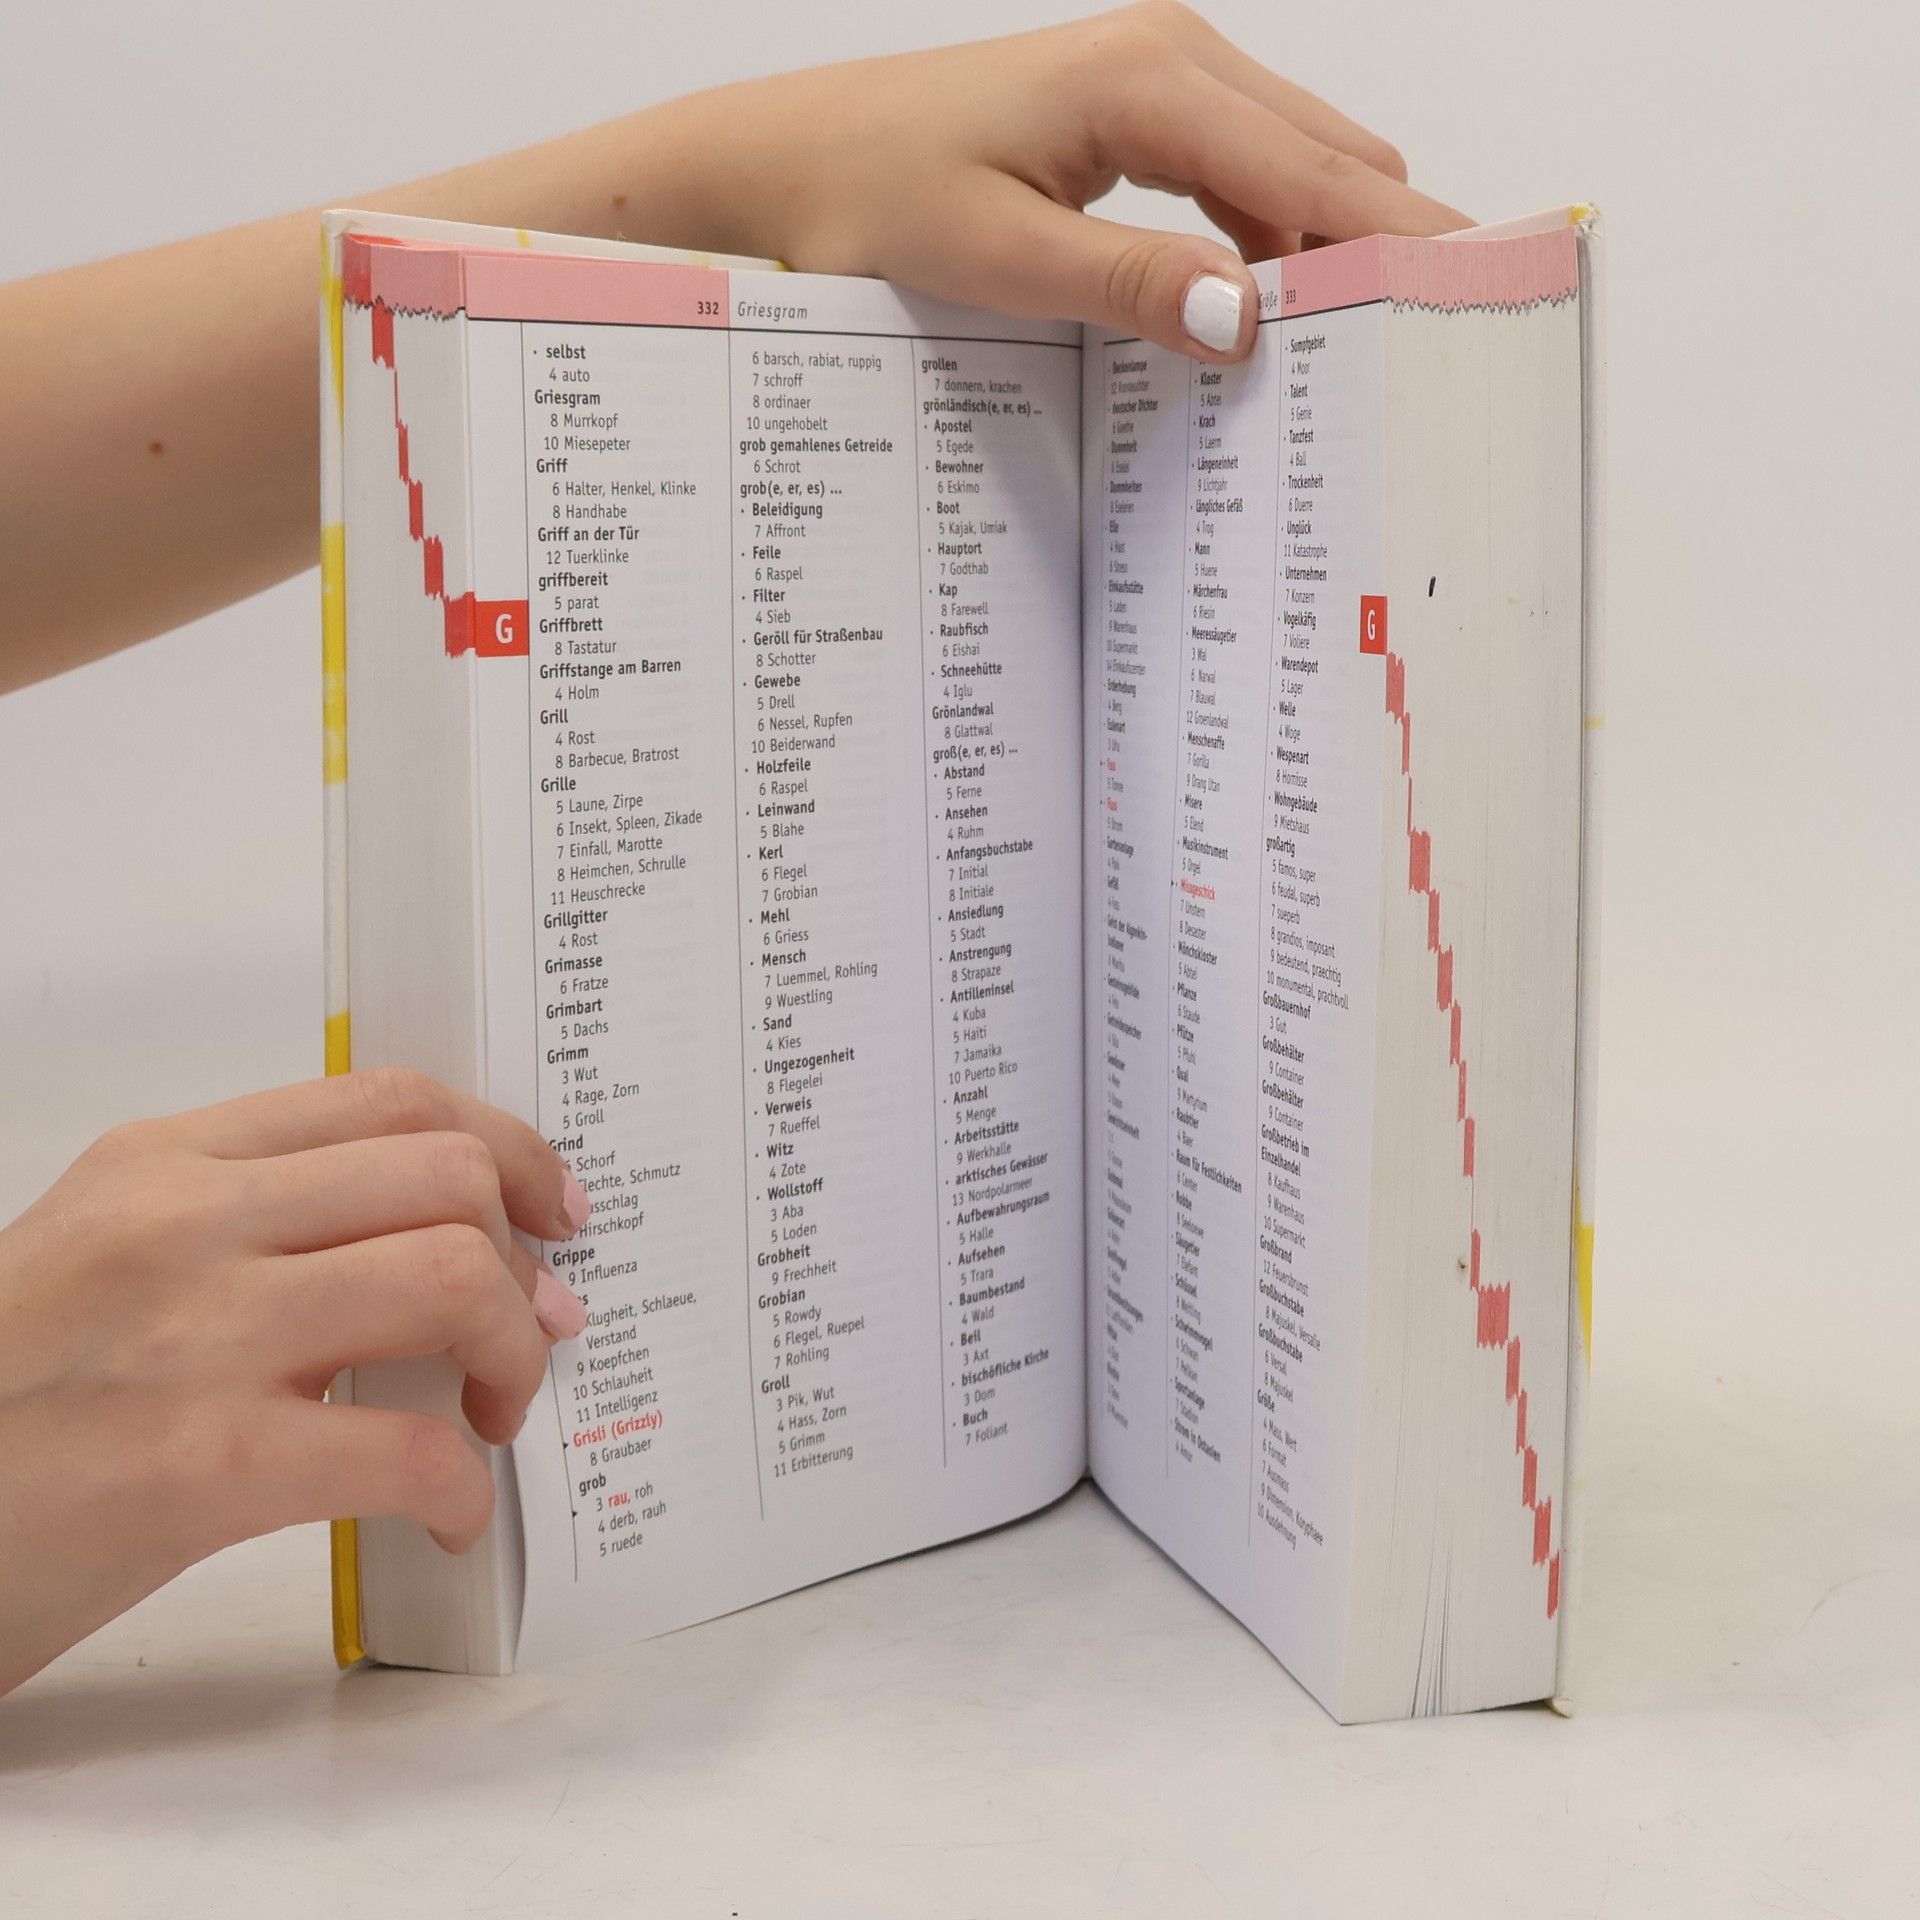 332 Griesgram
G
· selbst
4 auto
Griesgram
8 Murrkopf
10 Miesepeter
Griff
6 Halter, Henkel, Klinke
8 Handhabe
Griff an der Tür
12 Tuerklinke
griffbereit
5 parat
Griffbrett
8 Tastatur
Griffstange am Barren
4 Holm
Grill
4 Rost
8 Barbecue, Bratrost
Grille
5 Laune, Zirpe
6 Insekt, Spleen, Zikade
7 Einfall, Marotte
8 Heimchen, Schrulle
11 Heuschrecke
Grillgitter
4 Rost
Grimasse
6 Fratze
Grimbart
5 Dachs
Grimm
3 Wut
4 Rage, Zorn
5 Groll
Grind
Schorf
Schmutz
Hirschkopf
Grippe
9 Influenza
Klugheit, Schlaeue,
Verstand
9 Koepfchen
10 Schlauheit
11 Intelligenz
Grisli (Grizzly)
8 Graubaer
grob
3 rau, roh
4 derb, rauh
5 ruede
6 barsch, rabiat, ruppig
7 schroff
8 ordinaer
10 ungehobelt
grob gemahlenes Getreide
6 Schrot
grob(e, er, es) ...
· Beleidigung
7 Affront
· Feile
6 Raspel
· Filter
4 Sieb
· Geröll für Straßenbau
8 Schotter
· Gewebe
5 Drell
6 Nessel, Rupfen
10 Beiderwand
· Holzfeile
6 Raspel
· Leinwand
5 Blahe
· Kerl
6 Flegel
7 Grobian
· Mehl
6 Griess
· Mensch
7 Luemmel, Rohling
9 Wuestling
· Sand
4 Kies
· Ungezogenheit
8 Flegelei
· Verweis
7 Rueffel
· Witz
4 Zote
· Wollstoff
3 Aba
5 Loden
Grobheit
9 Frechheit
Grobian
5 Rowdy
6 Flegel, Ruepel
7 Rohling
Groll
3 Pik, Wut
4 Hass, Zorn
5 Grimm
11 Erbitterung
grollen
7 donnern, krachen
grönländisch(e, er, es) ...
· Apostel
5 Egede
· Bewohner
6 Eskimo
· Boot
5 Kajak, Umiak
· Hauptort
7 Godthab
· Kap
8 Farewell
· Raubfisch
6 Eishai
· Schneehütte
4 Iglu
Grönlandwal
8 Glattwal
groß(e, er, es) ...
· Abstand
5 Ferne
· Ansehen
4 Ruhm
· Anfangsbuchstabe
7 Initial
8 Initiale
· Ansiedlung
5 Stadt
· Anstrengung
8 Strapaze
· Antilleninsel
4 Kuba
5 Haiti
7 Jamaika
10 Puerto Rico
· Anzahl
5 Menge
· Arbeitsstätte
9 Werkhalle
· arktisches Gewässer
13 Nordpolarmeer
· Aufbewahrungsraum
5 Halle
· Aufsehen
5 Trara
· Baumbestand
4 Wald
· Beil
3 Axt
· bischöfliche Kirche
3 Dom
· Buch
7 Foliant
333
G
· Deckenlampe
12 Kronleuchter
· deutscher Dichter
6 Goethe
· Dummheit
6 Eselei
· Dummheiten
8 Eseleien
· Eile
4 Hast
6 Stress
· Einkaufsstätte
5 Laden
9 Warenhaus
10 Supermarkt
14 Einkaufscenter
· Erderhebung
4 Berg
· Eulenart
3 Uhu
· Fass
5 Tonne
· Fluss
5 Strom
· Gartenanlage
4 Park
· Kloster
5 Abtei
· Krach
5 Laerm
· Längeneinheit
9 Lichtjahr
· längliches Gefäß
4 Trog
· Mann
5 Huene
· Märchenfrau
6 Riesin
· Meeressäugetier
3 Wal
6 Narwal
7 Blauwal
12 Groenlandwal
· Menschenaffe
7 Gorilla
9 Orang Utan
· Misere
5 Elend
· Musikinstrument
5 Orgel
· Missgeschick
7 Unstern
8 Desaster
· Mönchskloster
5 Abtei
· Pflanze
6 Staude
· Pfütze
5 Pfuhl
· Qual
9 Martyrium
· Raubtier
4 Baer
· Raum für Festlichkeiten
6 Center
· Robbe
8 Seeloewe
· Säugetier
7 Elefant
· Schlüssel
· Schwimmvogel
6 Schwan
7 Pelikan
· Sportanlage
7 Stadion
· Strom in Ostasien
4 Amur
· Sumpfgebiet
4 Moor
· Talent
5 Genie
· Tanzfest
4 Ball
· Trockenheit
6 Duerre
· Unglück
11 Katastrophe
· Unternehmen
7 Konzern
· Vogelkäfig
7 Voliere
· Warendepot
5 Lager
· Welle
4 Woge
· Wespenart
8 Hornisse
· Wohngebäude
9 Mietshaus
großartig
5 famos, super
6 feudal, superb
7 sueperb
8 grandios, imposant
9 bedeutend, praechtig
10 monumental, prachtvoll
Großbauernhof
3 Gut
Großbehälter
9 Container
Großbehälter
9 Container
Großbetrieb im
Einzelhandel
8 Kaufhaus
9 Warenhaus
10 Supermarkt
Großbrand
12 Feuersbrunst
Großbuchstabe
8 Majuskel, Versalie
Großbuchstabe
6 Versal
8 Majuskel
Größe
4 Mass, Wert
6 Format
7 Ausmass
9 Dimension, Koryphaee
10 Ausdehnung